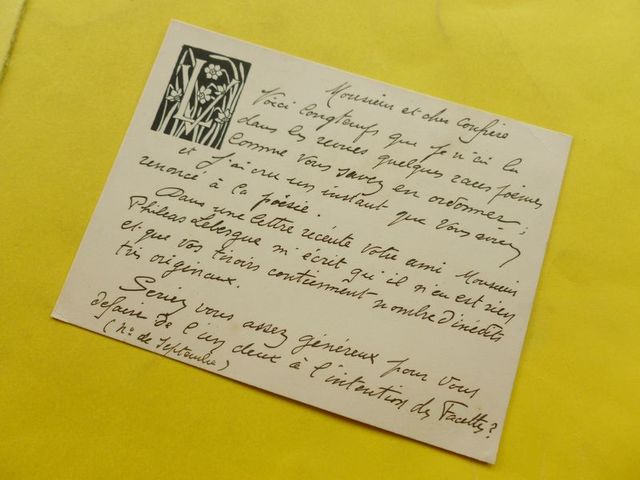 Monsieur et cher Confrère
Voici longtemps que je n'ai lu
dans les revues quelques rares poèmes
comme vous savez en ordonner;
et j'ai cru un instant que vous aviez
renoncé à la poésie.
Dans une lettre récente votre ami Monsieur
Philéas Lebesgue m'écrit qu'il n'en est rien
et que vos tiroirs contiennent nombre d'inédits
très originaux.
Seriez vous assez généreux pour vous
défaire de l'un d'eux à l'intention des Facettes?
(No de Septembre)